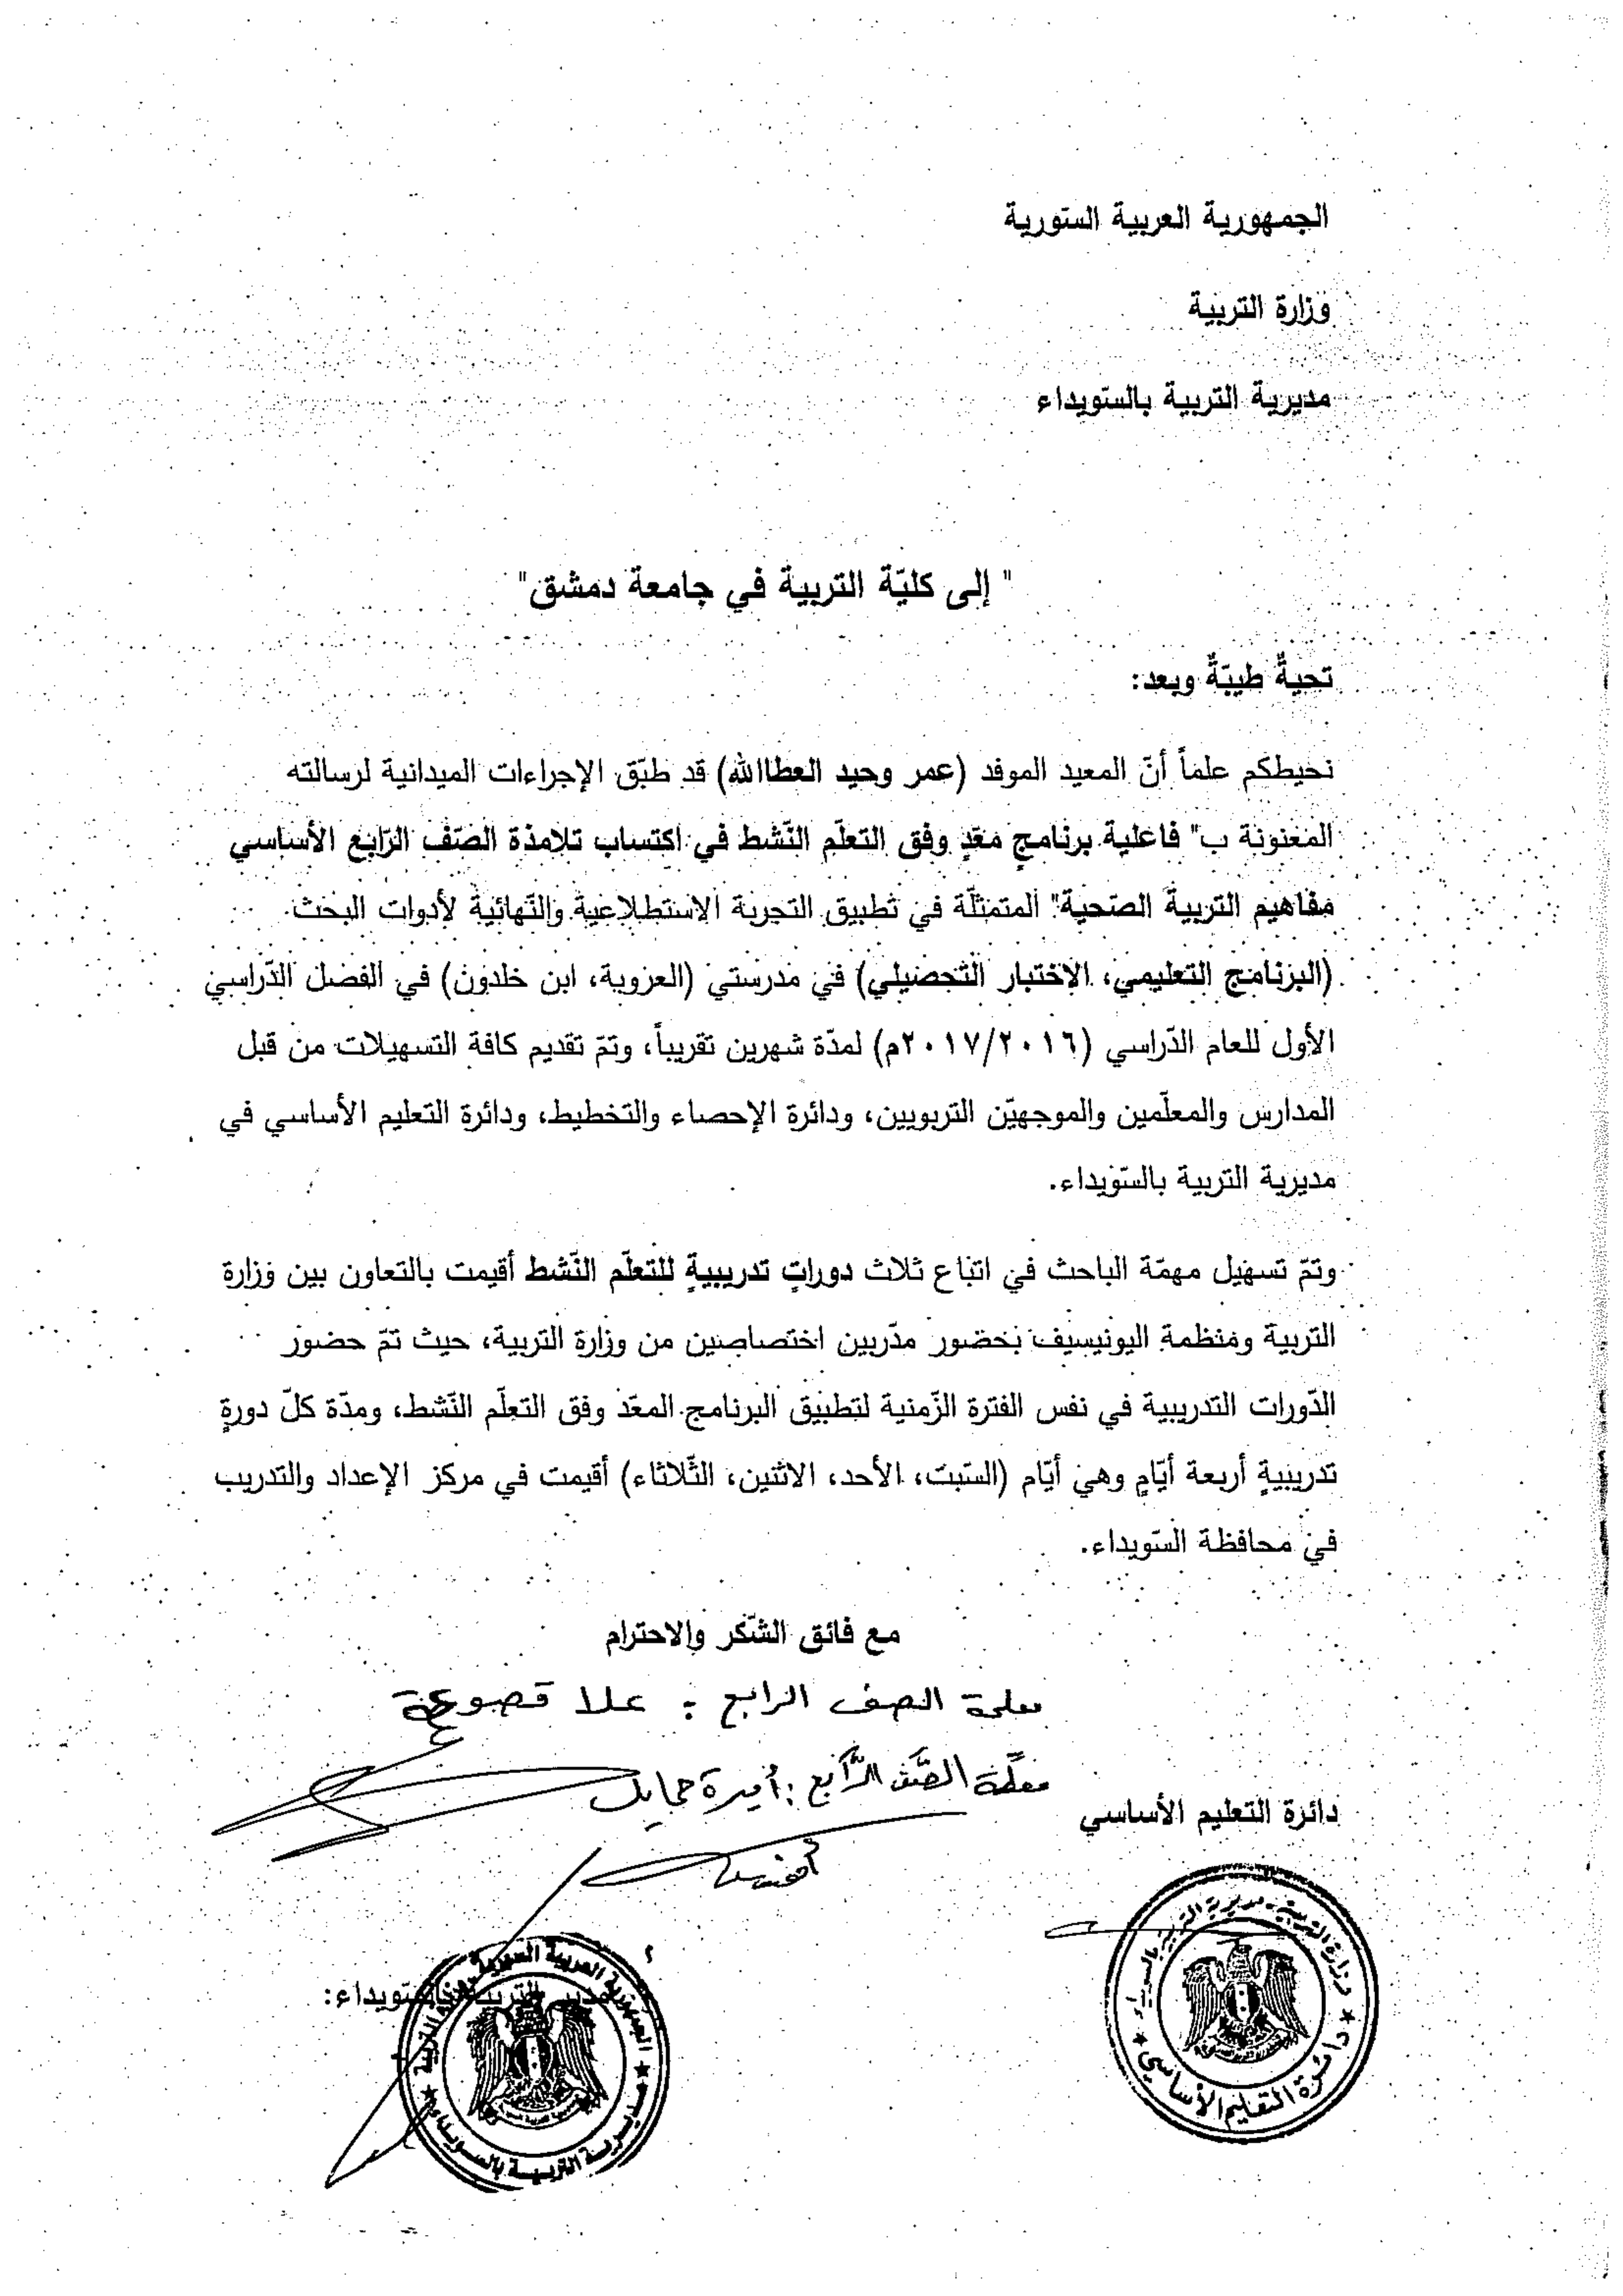 الجمهورية العربية السّورية
وزارة التربية
مديرية التربية بالسّويداء
" إلى كليّة التربية في جامعة دمشق"
تحيةٌ طيبّةٌ وبعد:
نحيطكم علماً أنّ المعيد الموفد (عمر وحيد العطاالله) قد طبّق الإجراءات الميدانية لرسالته
المعنونة ب" فاعلية برنامجٍ معّدٍ وفق التعلّم النّشط في اكتساب تلامذة الصّف الرّابع الأساسي
مفاهيم التربية الصّحية" المتمثلّة في تطبيق التجربة الاستطلاعية والنّهائية لأدوات البحث
(البرنامج التعليمي، الاختبار التّحصيلي) في مدرستي (العروبة، ابن خلدون) في الفصل الدّراسي
الأول للعام الدّراسي (٢٠١٧/٢٠١٦م) لمدّة شهرين تقريباً، وتمّ تقديم كافة التسهيلات من قبل
المدارس والمعلّمين والموجهيّن التربويين، ودائرة الإحصاء والتخطيط، ودائرة التعليم الأساسي في
مديرية التربية بالسّويداء.
وتمّ تسهيل مهمّة الباحث في اتبّاع ثلاث دوراتٍ تدريبيةٍ للتعلّم النّشط أقيمت بالتعاون بين وزارة
التربية ومنظمة اليونيسيف بحضور مدّربين اختصاصين من وزارة التربية، حيث تمّ حضور
الدّورات التدريبية في نفس الفترة الزّمنية لتطبيق البرنامج المعّد وفق التعلّم النّشط، ومدّة كلّ دورةٍ
تدريبيةٍ أربعة أيّامٍ وهي أيّام (السّبت، الأحد، الاثنين، الثّلاثاء) أقيمت في مركز الإعداد والتدريب
في محافظة السّويداء.
مع فائق الشّكر والاحترام
معلمة الصف الرابع : علا قصوعة
معلّمة الصَّف الرَّابع : أميرة حمايل
دائرة التعليم الأساسي
وزارة التربية - مديرية التربية بالسويداء
★ دائرة التعليم الأساسي ★
مدير التربية بالسّويداء:
الجمهورية العربية السورية وزارة التربية
★ مديرية التربية بالسويداء ★